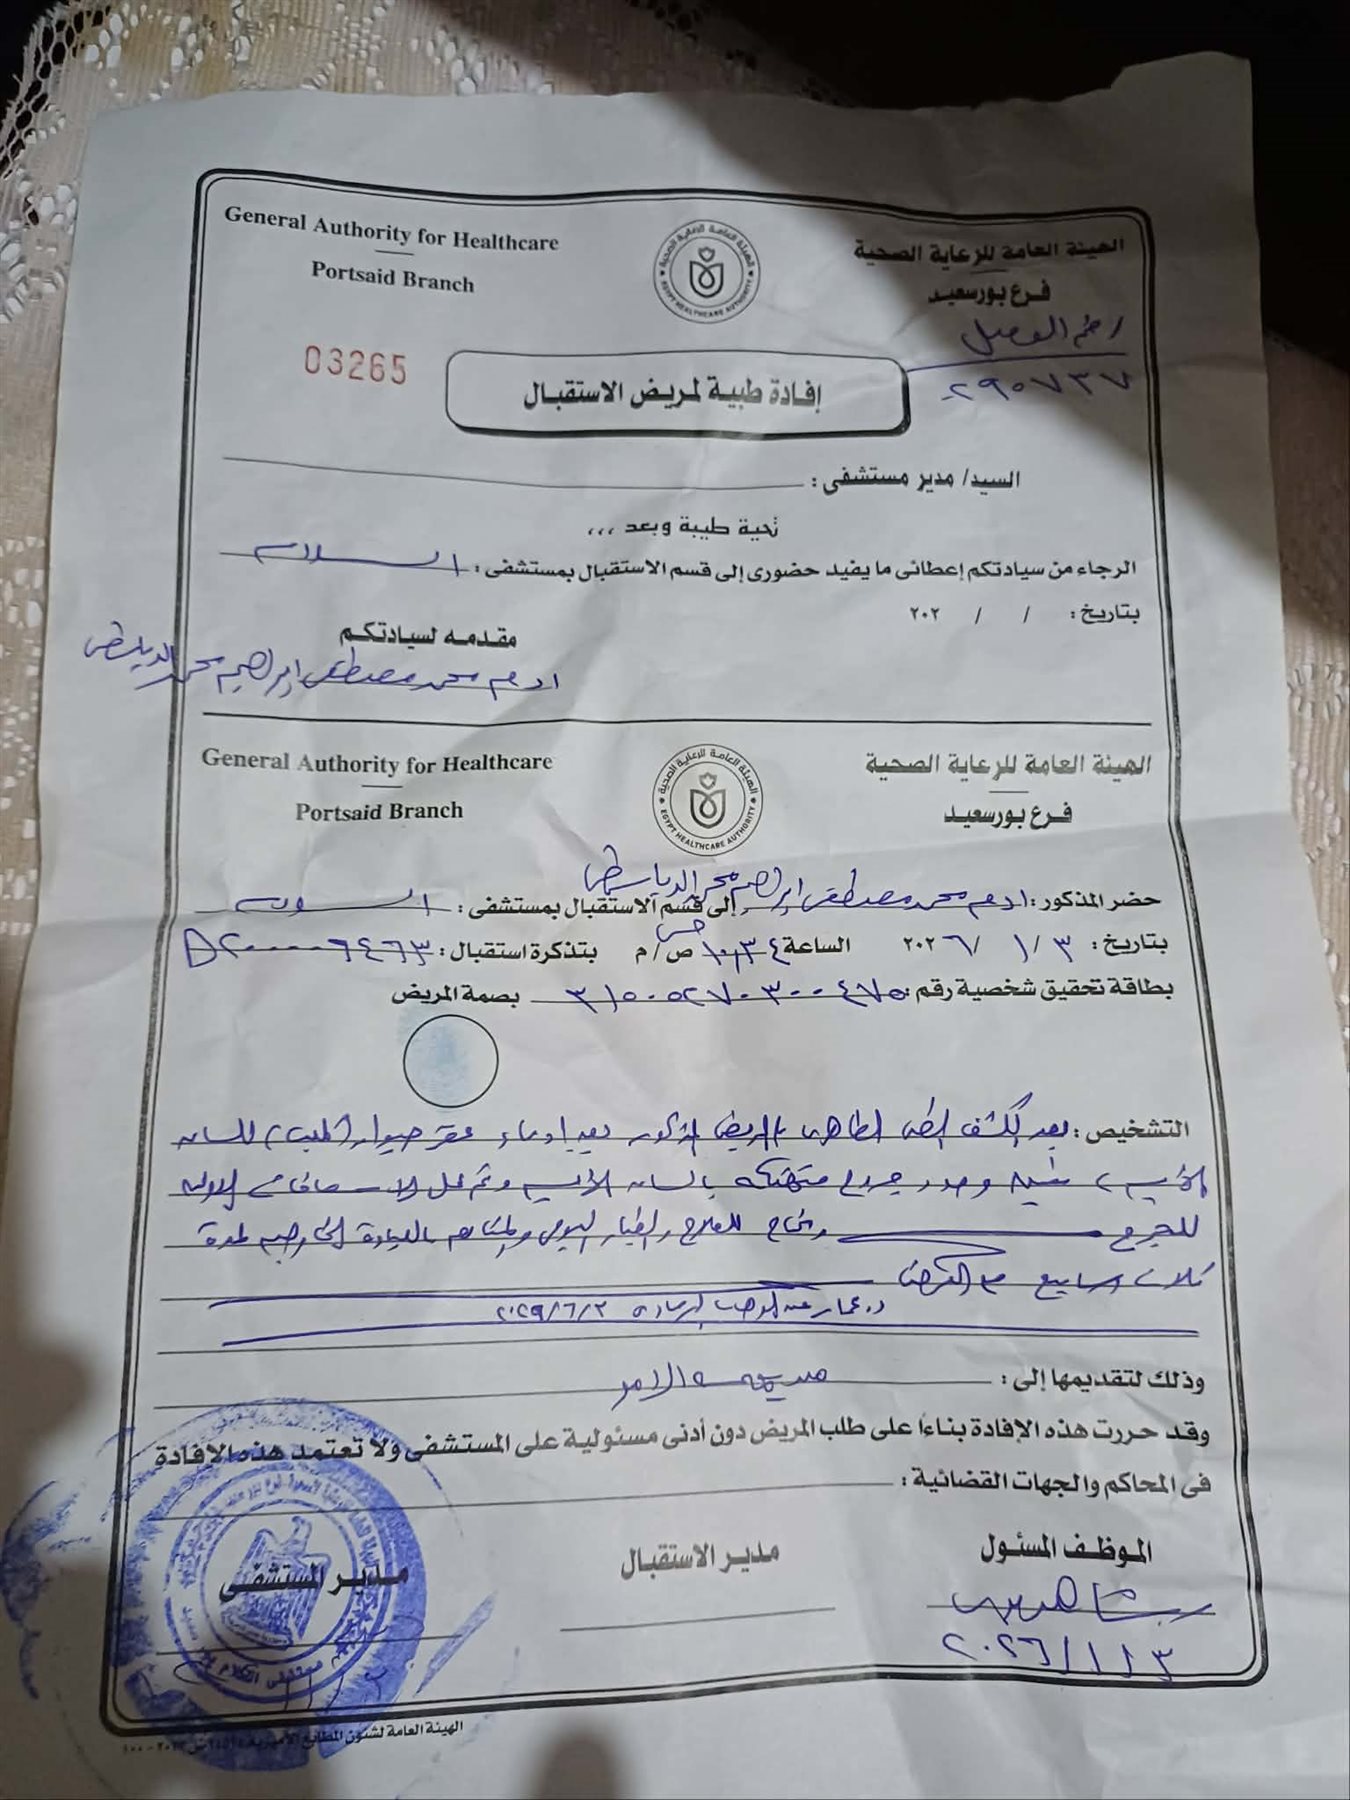 General Authority for Healthcare
Portsaid Branch
الهيئة العامة للرعاية الصحية
فرع بورسعيد
رقم العميل
٢٩٠٧٣٧
03265
إفادة طبية لمريض الاستقبال
السيد/ مدير مستشفى :
تحية طيبة وبعد ,,,
الرجاء من سيادتكم إعطائى ما يفيد حضورى إلى قسم الاستقبال بمستشفى : السلام
بتاريخ : / / ٢٠٢
مقدمه لسيادتكم
ادهم محمد مصطفى ابراهيم محمد
General Authority for Healthcare
Portsaid Branch
الهيئة العامة للرعاية الصحية
فرع بورسعيد
حضر المذكور : ادهم محمد مصطفى ابراهيم محمد إلى قسم الاستقبال بمستشفى : السلام
بتاريخ : ٣ / ١ / ٢٠٢٦ الساعة ١٠,٣٤ ص/م بتذكرة استقبال :
بطاقة تحقيق شخصية رقم : ٣١٥٠٥٢٧٠٣٠٠٤٧٥ بصمة المريض
التشخيص : بعد الكشف الطبى الظاهرى بالمريض المذكور بعد ادعاء عقر حيوان (كلب) للساق
وجود جروح متهتكة بالساق وتم عمل الاسعافات الاولية
للجرح للعلاج والغيار اليومى والمتابعة بالعيادة لمدة
ثلاث اسابيع
وذلك لتقديمها إلى : من يهمه الامر
وقد حررت هذه الإفادة بناءاً على طلب المريض دون أدنى مسئولية على المستشفى ولا تعتمد هذه الإفادة
فى المحاكم والجهات القضائية :
الموظف المسئول
مدير الاستقبال
مدير المستشفى
٢٠٢٦/١/٣
الهيئة العامة لشئون المطابع الأميرية